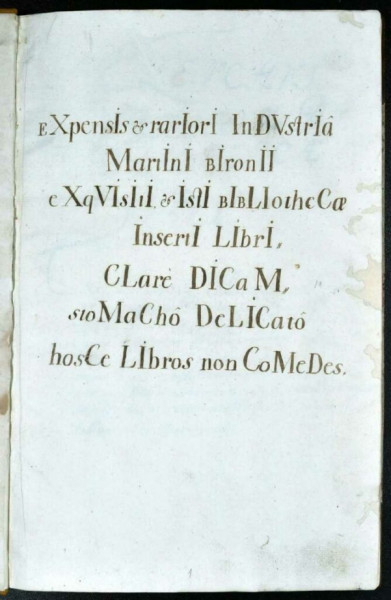 eXpensİs & rarİorİ InDVstrİâ
MarıİnI BİronİI
eXqVİsİtİ, & İstİ BİBLIotheCæ
İnsertİ LİbrI,
CLarè DİCaM,
stoMaChô DeLICatô
hosCe LİbRos non CoMeDes.